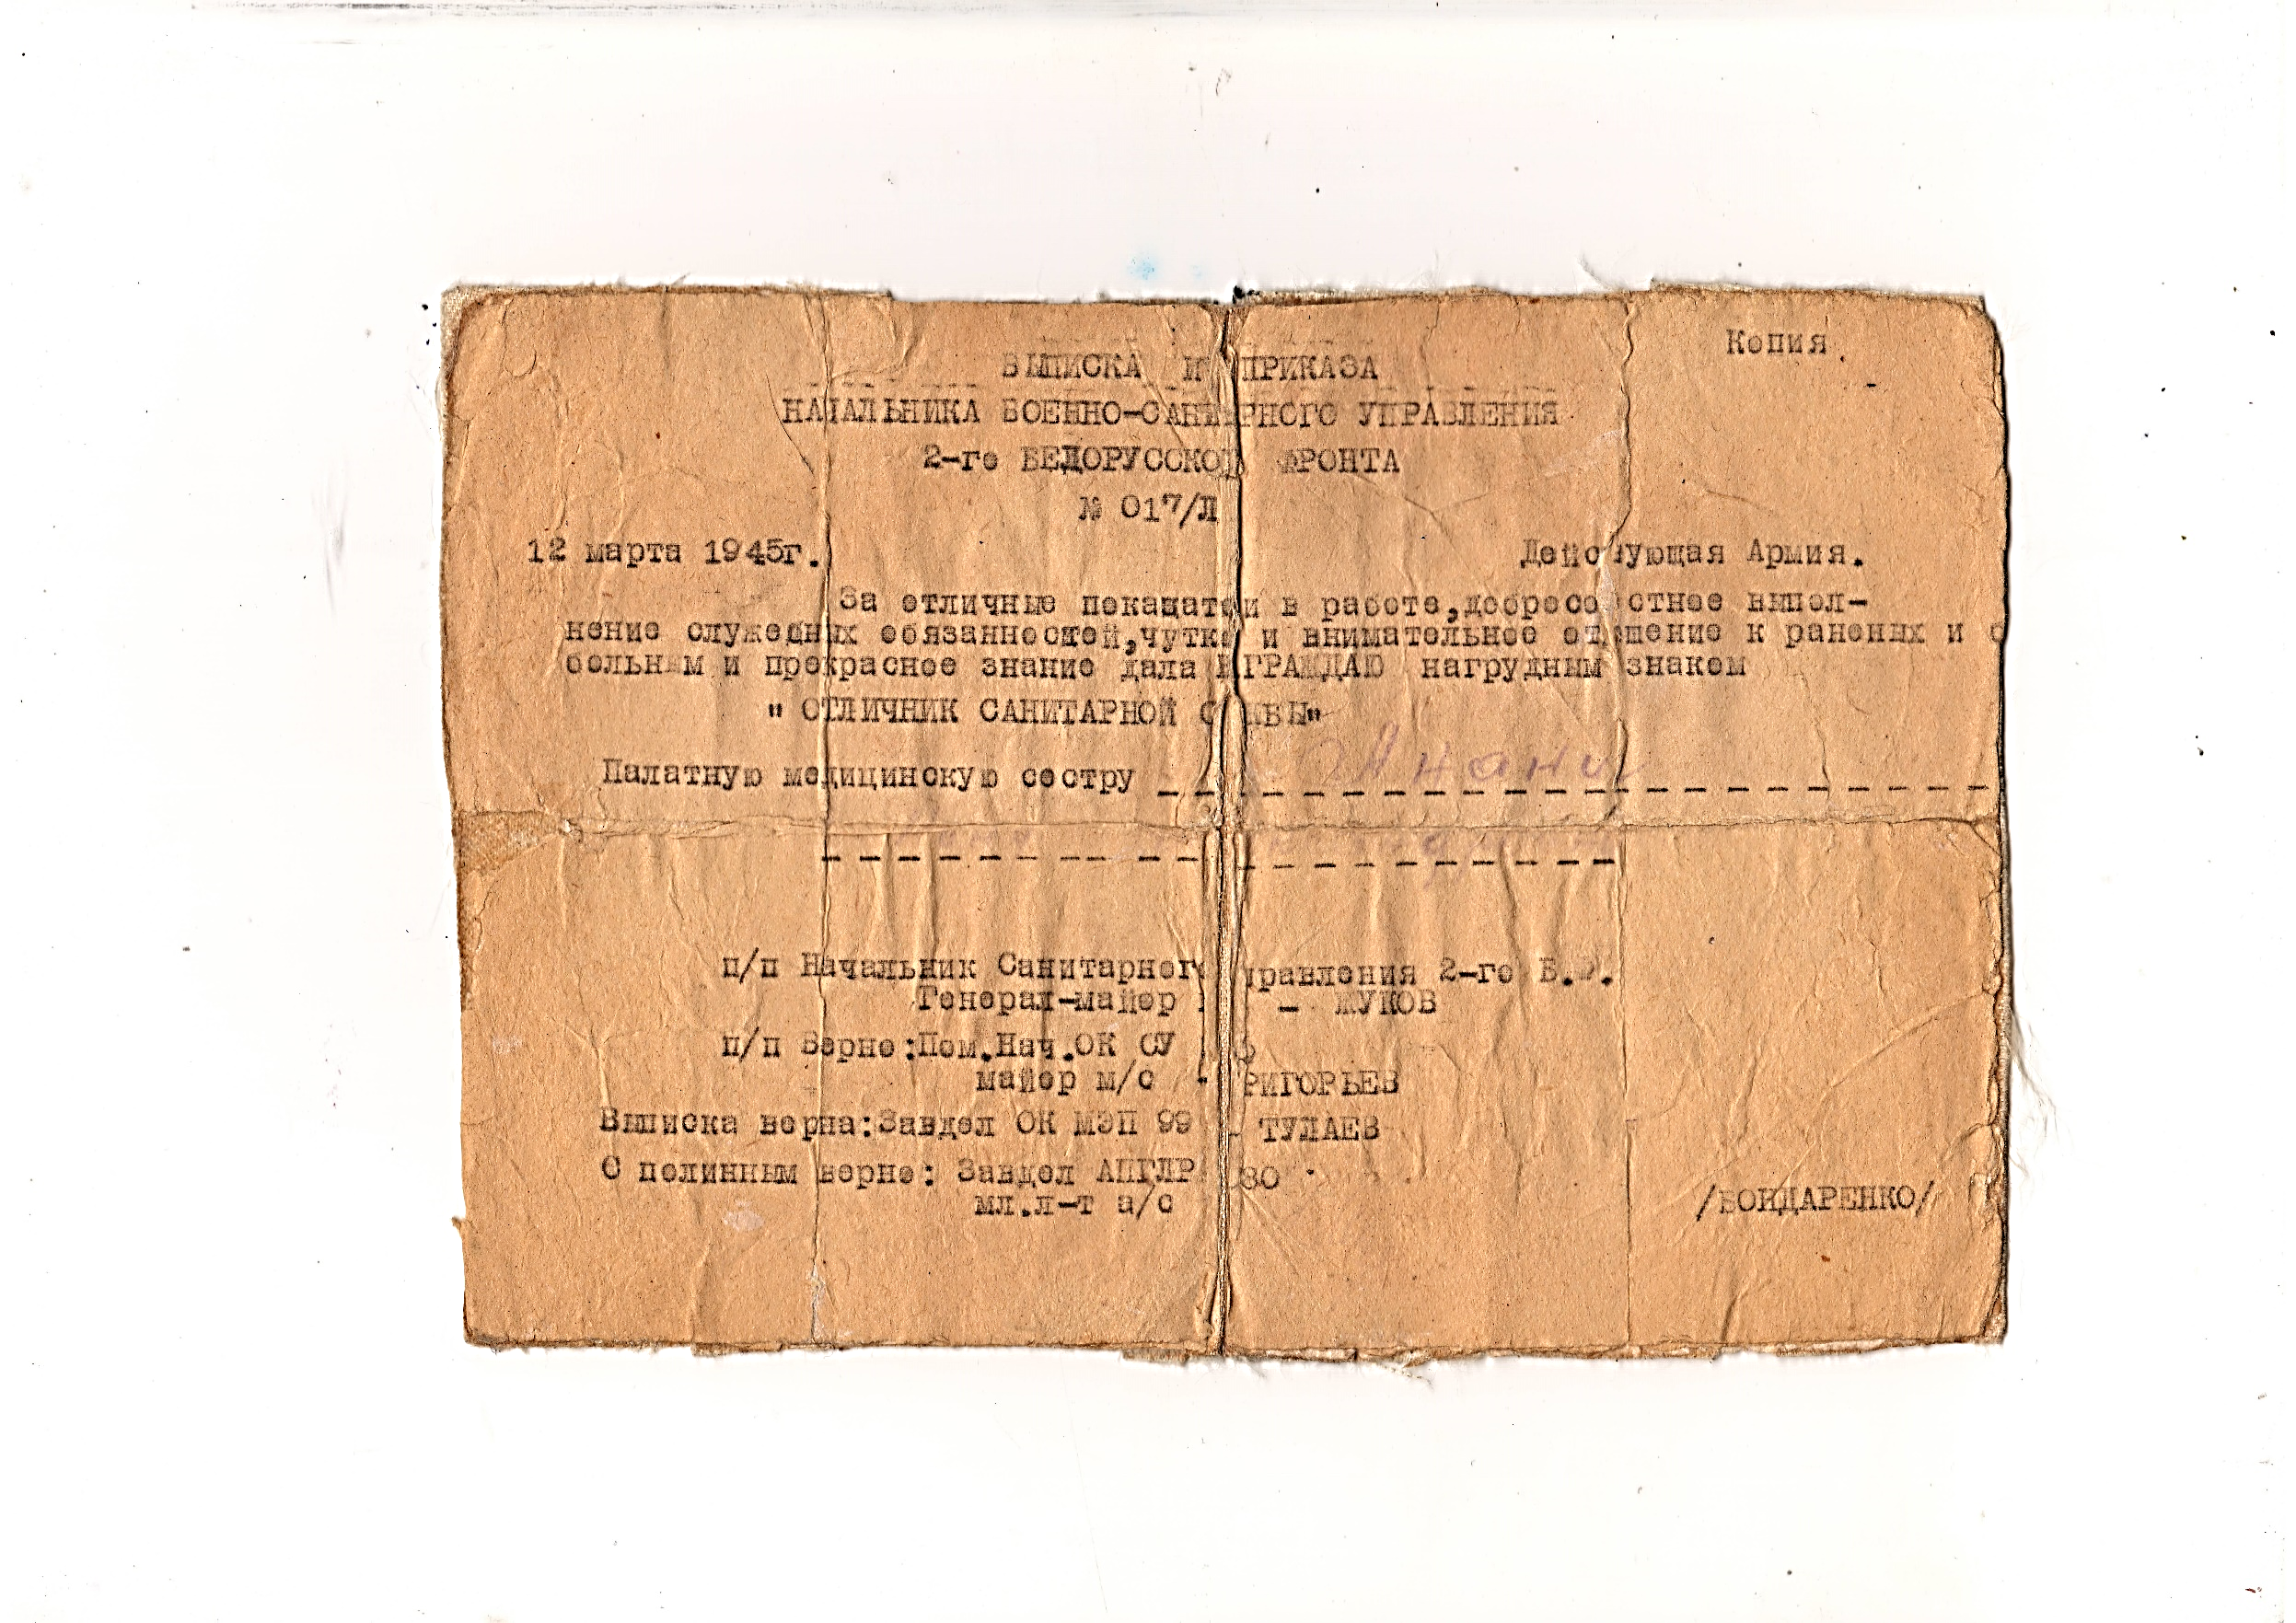 Копия
ВЫПИСКА ИЗ ПРИКАЗА
НАЧАЛЬНИКА ВОЕННО-САНИТАРНОГО УПРАВЛЕНИЯ
2-го БЕЛОРУССКОГО ФРОНТА
№ 017/Л
12 марта 1945г. Действующая Армия.
За отличные показатели в работе,добросовестное выпол-
нение служебных обязанностей,чуткое и внимательное отношение к раненых и
больным и прекрасное знание дала НАГРАЖДАЮ нагрудным знаком
" ОТЛИЧНИК САНИТАРНОЙ СЛУЖБЫ"
Палатную медицинскую сестру
п/п Начальник Санитарного Управления 2-го Б.Ф.
Генерал-майор - ЖУКОВ
п/п Верно:Пом.Нач.ОК СУ
майор м/с - ГРИГОРЬЕВ
Выписка верна:Завдел ОК МЭП 99 - ТУЛАЕВ
С полинным верно: Завдел АПГЛР
мл.л-т а/с /БОНДАРЕНКО/